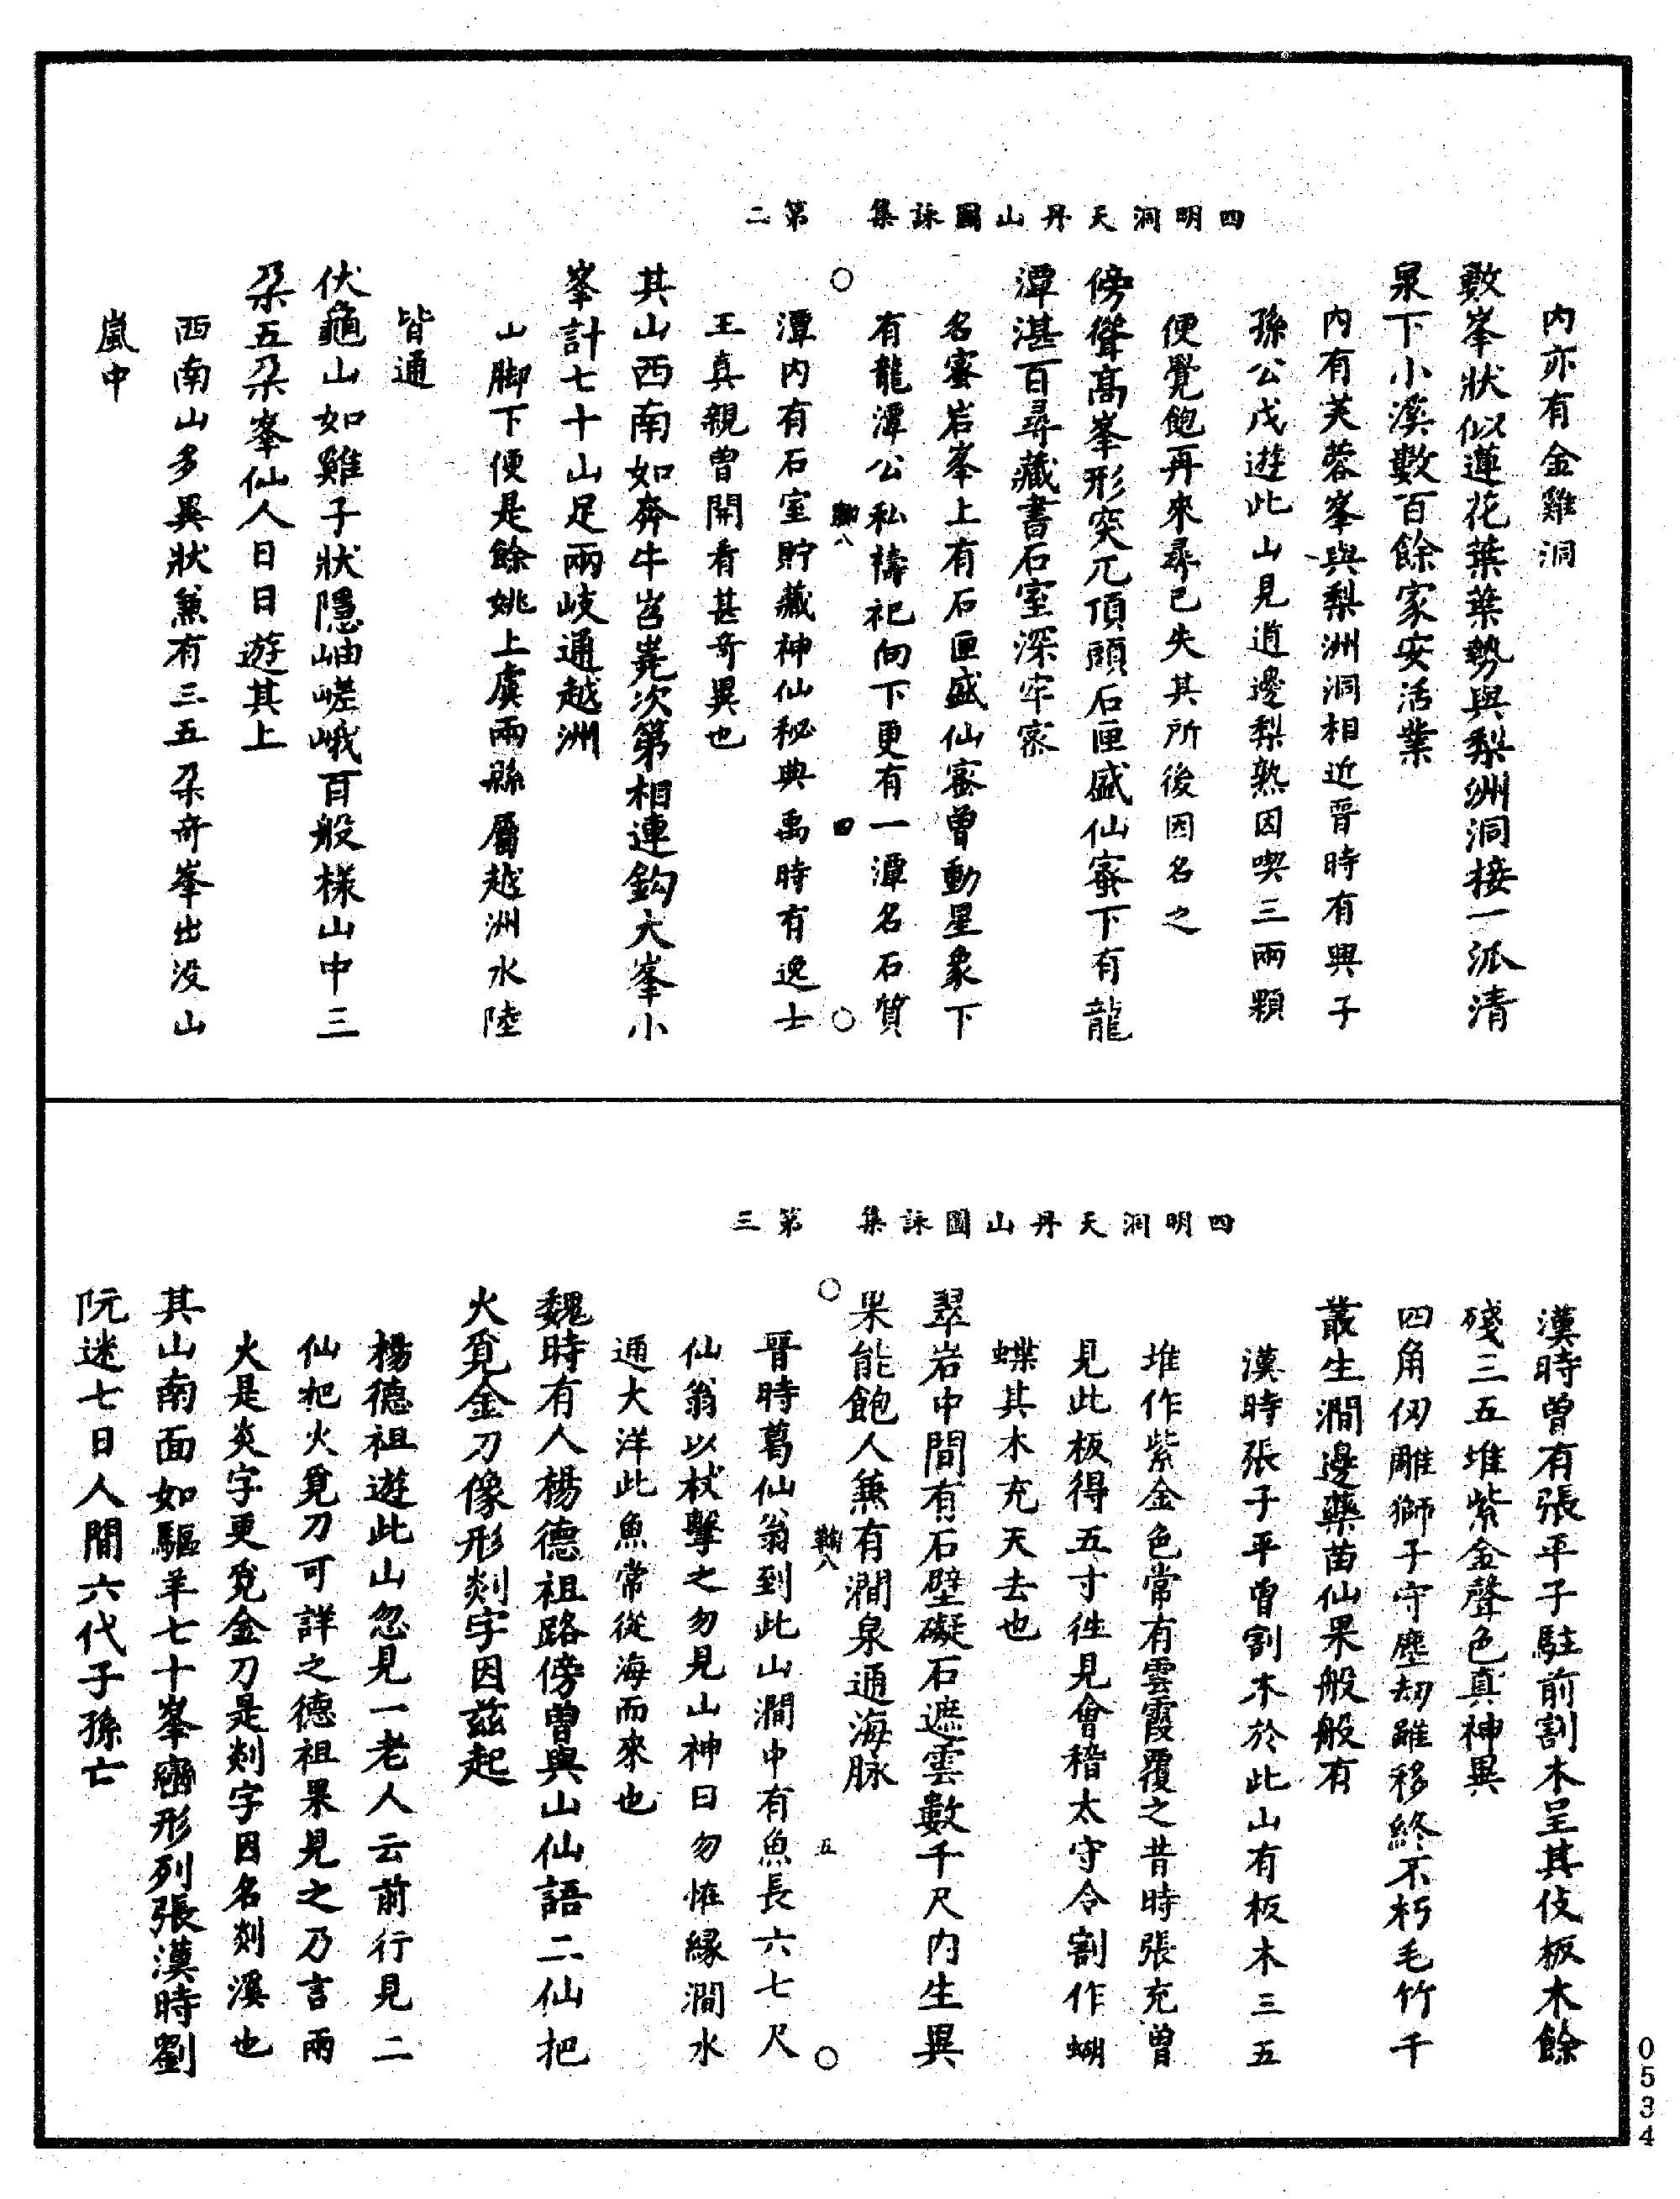 四明洞天丹山圖詠集　第二
内亦有金雞洞
數峯狀似蓮花葉葉勢與梨洲洞接一派清
泉下小溪數百餘家安活業
内有芙蓉峯與梨洲洞相近晉時有興子
孫公戊遊此山見道邊梨熟因喫三兩顆
便覺飽再來尋已失其所後因名之
傍聳高峯形突兀頂頭石匣盛仙蜜下有龍
潭湛百尋藏書石室深牢密
名蜜岩峯上有石匣盛仙蜜曾動星象下
有龍潭公私禱祀向下更有一潭名石質
鞠八　四
潭内有石室貯藏神仙秘典禹時有逸士
王真親曾開看甚奇異也
其山西南如奔牛岧嶤次第相連鈎大峯小
峯計七十山足兩岐通越洲
山脚下便是餘姚上虞兩縣屬越洲水陸
皆通
伏龜山如雞子狀隱岫嵯峨百般樣山中三
朶五朶峯仙人日日遊其上
西南山多異狀兼有三五朶奇峯出没山
嵐中
四明洞天丹山圖詠集　第三
漢時曾有張平子駐前割木呈其伎板木餘
殘三五堆紫金聲色真神異
四角仞雕獅子守塵刼雖移終不朽毛竹千
叢生澗邊藥苗仙果般般有
漢時張子平曾割木於此山有板木三五
堆作紫金色常有雲霞覆之昔時張充曾
見此板得五寸徃見會稽太守令割作蝴
蝶其木充天去也
翠岩中間有石壁礙石遮雲數千尺内生異
果能飽人兼有澗泉通海脉
鞠八　五
晉時葛仙翁到此山澗中有魚長六七尺
仙翁以杖擊之勿見山神曰勿恠緣澗水
通大洋此魚常從海而來也
魏時有人楊德祖路傍曾與山仙語二仙把
火覓金刀像形剡字因茲起
楊德祖遊此山忽見一老人云前行見二
仙把火覓刀可詳之德祖果見之乃言兩
火是炎字更覓金刀是剡字因名剡溪也
其山南面如驅羊七十峯巒形列張漢時劉
阮迷七日人間六代子孫亡
0534